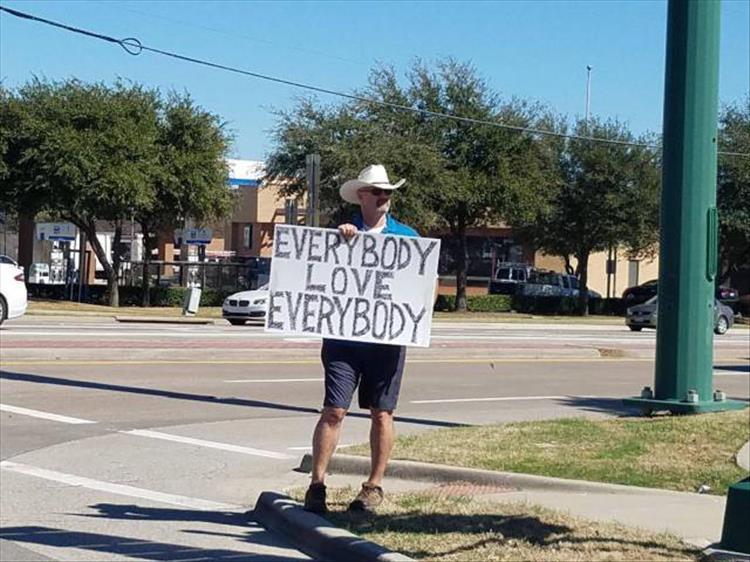 EVERYBODY
LOVE
EVERYBODY